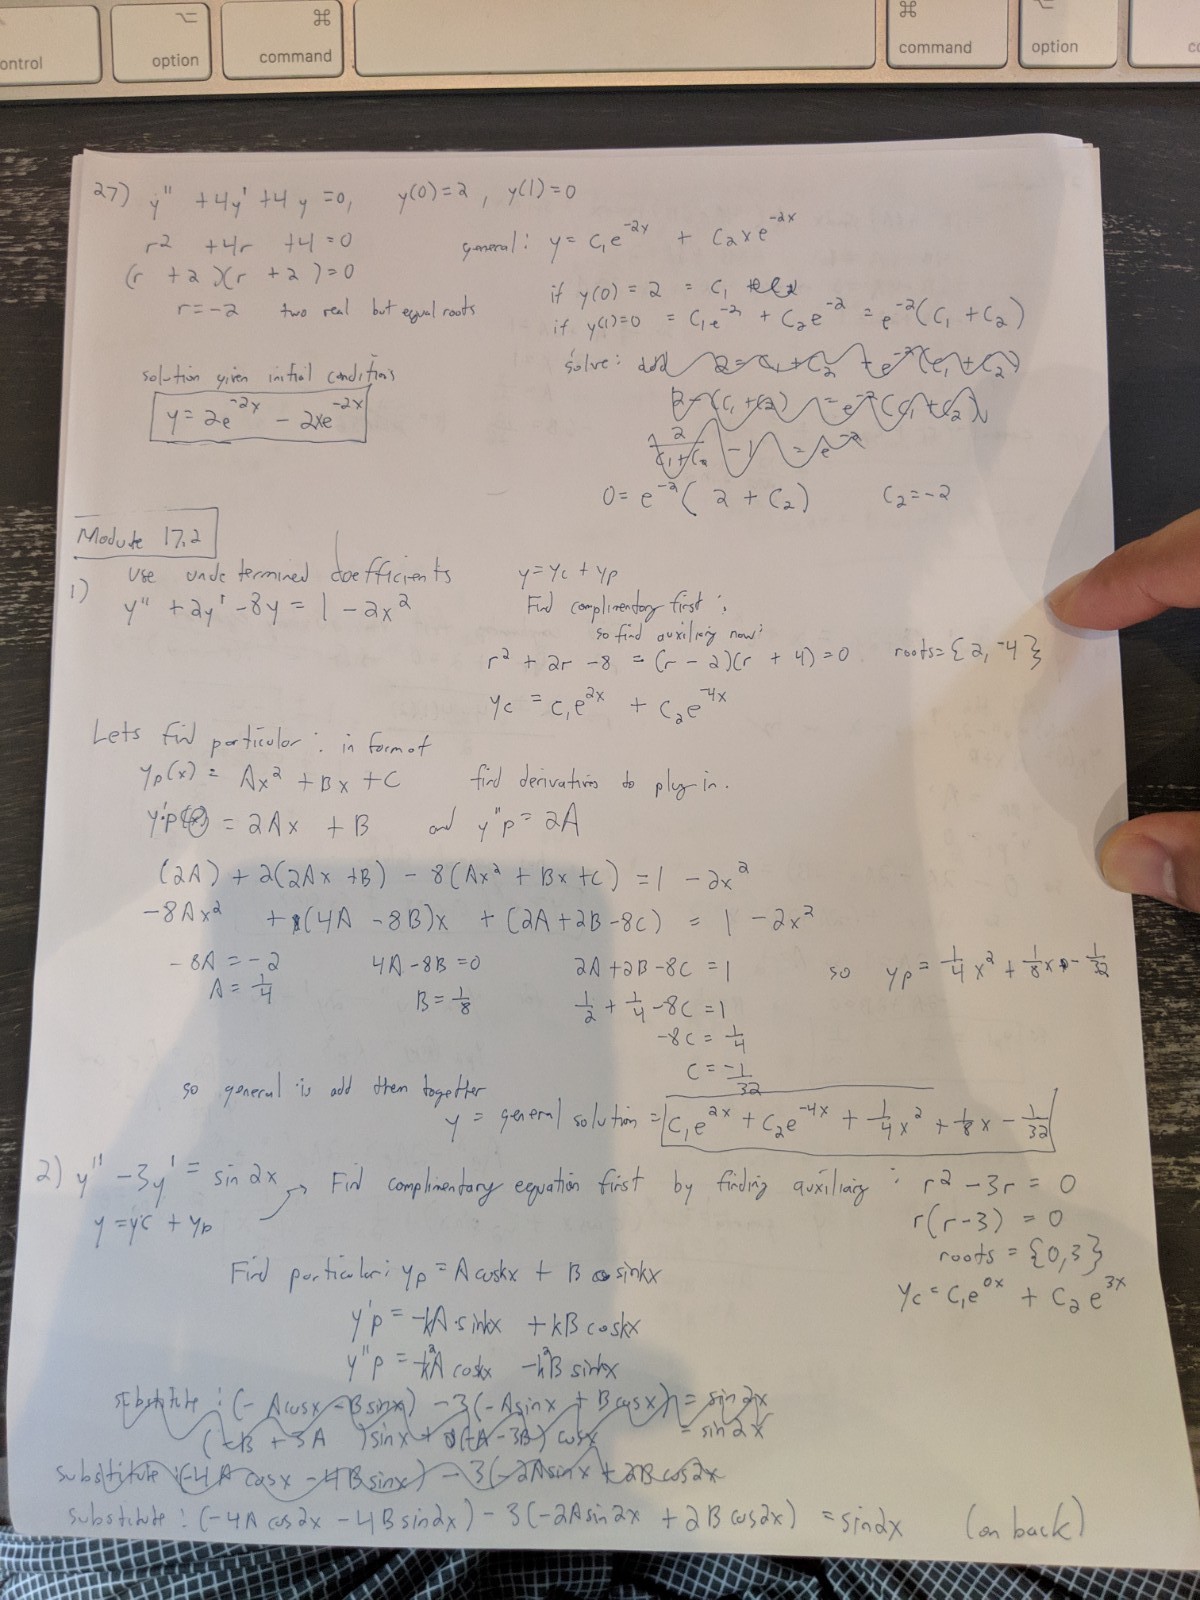 control
⌥
option
⌘
command
⌘
command
⌥
option
27) y'' + 4y' + 4y = 0, y(0) = 2 , y(1) = 0
r² + 4r + 4 = 0
(r + 2)(r + 2) = 0
r = -2 two real but equal roots
general: y = C₁e^-2x + C₂xe^-2x
if y(0) = 2 = C₁
if y(1)=0 = C₁e^-2 + C₂e^-2 = e^-2(C₁ + C₂)
solve: add 2 = C₁ + C₂ + e^-2(C₁ + C₂)
2 - (C₁ + C₂) = e^-2(C₁ + C₂)
2/(C₁+C₂) - 1 = e^-2
0 = e^-2(2 + C₂) C₂ = -2
solution given initial conditions
y = 2e^-2x - 2xe^-2x
Module 17.2
1) Use undetermined coefficients
y'' + 2y' - 8y = 1 - 2x²
y = yc + yp
Find complimentary first :
so find auxiliary now:
r² + 2r - 8 = (r - 2)(r + 4) = 0 roots = {2, -4}
yc = C₁e^2x + C₂e^-4x
Lets find particular : in form of
yp(x) = Ax² + Bx + C find derivatives to plug in.
y'p = 2Ax + B and y''p = 2A
(2A) + 2(2Ax + B) - 8(Ax² + Bx + C) = 1 - 2x²
-8Ax² + (4A - 8B)x + (2A + 2B - 8C) = 1 - 2x²
-8A = -2 4A - 8B = 0 2A + 2B - 8C = 1 so yp = 1/4 x² + 1/8 x - 1/32
A = 1/4 B = 1/8 1/2 + 1/4 - 8C = 1
-8C = 1/4
C = -1/32
so general is add them together
y = general solution = C₁e^2x + C₂e^-4x + 1/4 x² + 1/8 x - 1/32
2) y'' - 3y' = sin 2x → Find complimentary equation first by finding auxiliary : r² - 3r = 0
y = yc + yp
r(r - 3) = 0
roots = {0, 3}
yc = C₁e^0x + C₂e^3x
Find particular: yp = A coskx + B sinkx
y'p = -kA sinkx + kB coskx
y''p = -k²A coskx - k²B sinkx
substitute : (-Acosx - Bsinx) - 3(-Asinx + Bcosx) = sin2x
(-B + 3A) sinx + (-A - 3B) cosx = sin2x
substitute : (-4A cosx - 4B sinx) - 3(-2Asinx + 2B cos2x
substitute : (-4A cos2x - 4B sin2x) - 3(-2A sin2x + 2B cos2x) = sin2x (on back)